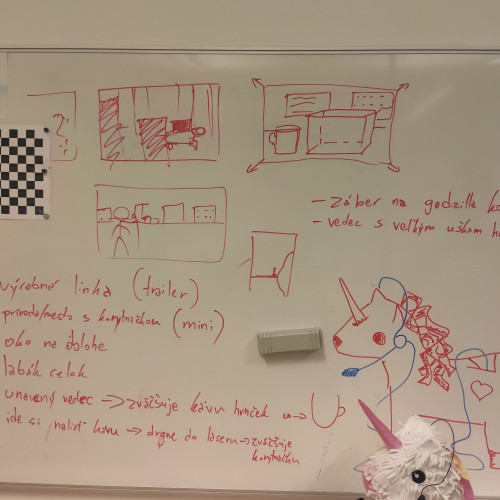 ?
- záber na godzilla
- vedec s veľkým uškom
výrobná linka (trailer)
príroda/mesto s korytnačkou (mini)
oko na
labák celok
unavený vedec → zväčšuje kávu hrnček
ide si naliať kávu → drgne do laseru → zväčšuje
korytnačku